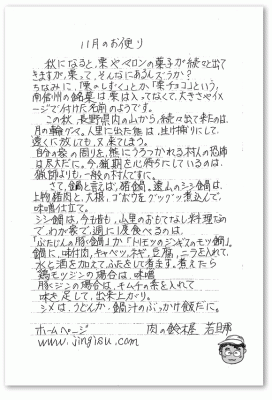 11月のお便り
秋になると、栗やマロンの菓子が続々と出て
きますが、栗って、そんなにあるんだろうか？
ちなみに、「栗のしずく」とか「栗チョコ」という、
南信州の銘菓は栗は入ってなくて、大きさやイメ
ージで付けた名前のようです。
この秋、長野県内の山から、続々出て来るのは、
月の輪グマ。人里に出た熊は、生け捕りにして、
遠くに放しても、又来てしまう。
自分の家の周りを、熊にうろつかれる村人の恐怖
は尽大だ。今、猟期を心待ちにしているのは、
猟師よりも、一般の村人ですに。
さて、鍋と言えば、猪鍋。遠山のシシ鍋は、
上物猪肉と、大根、ゴボウをグツグツ煮込んで、
味噌仕立て。
シシ鍋は、今も昔も、山里のおもてなし料理なの
で、わが家で、週に1度食べるのは、
「ぶたじんの豚ジン鍋」か「トリモツのジンギスのモツ鍋」。
鍋に、味付肉、キャベツ、ネギ、豆腐、ニラを入れて、
水と酒を加えて、ふたをして煮ます。煮えたら
鶏モツジンの場合は、味噌
豚ジンの場合は、キムチの素を入れて
味を足して、出来上がり。
シメは、うどんか、鍋汁のぶっかけ飯だに。
ホームページ 肉の鈴木屋 若旦那
www.jingisu.com